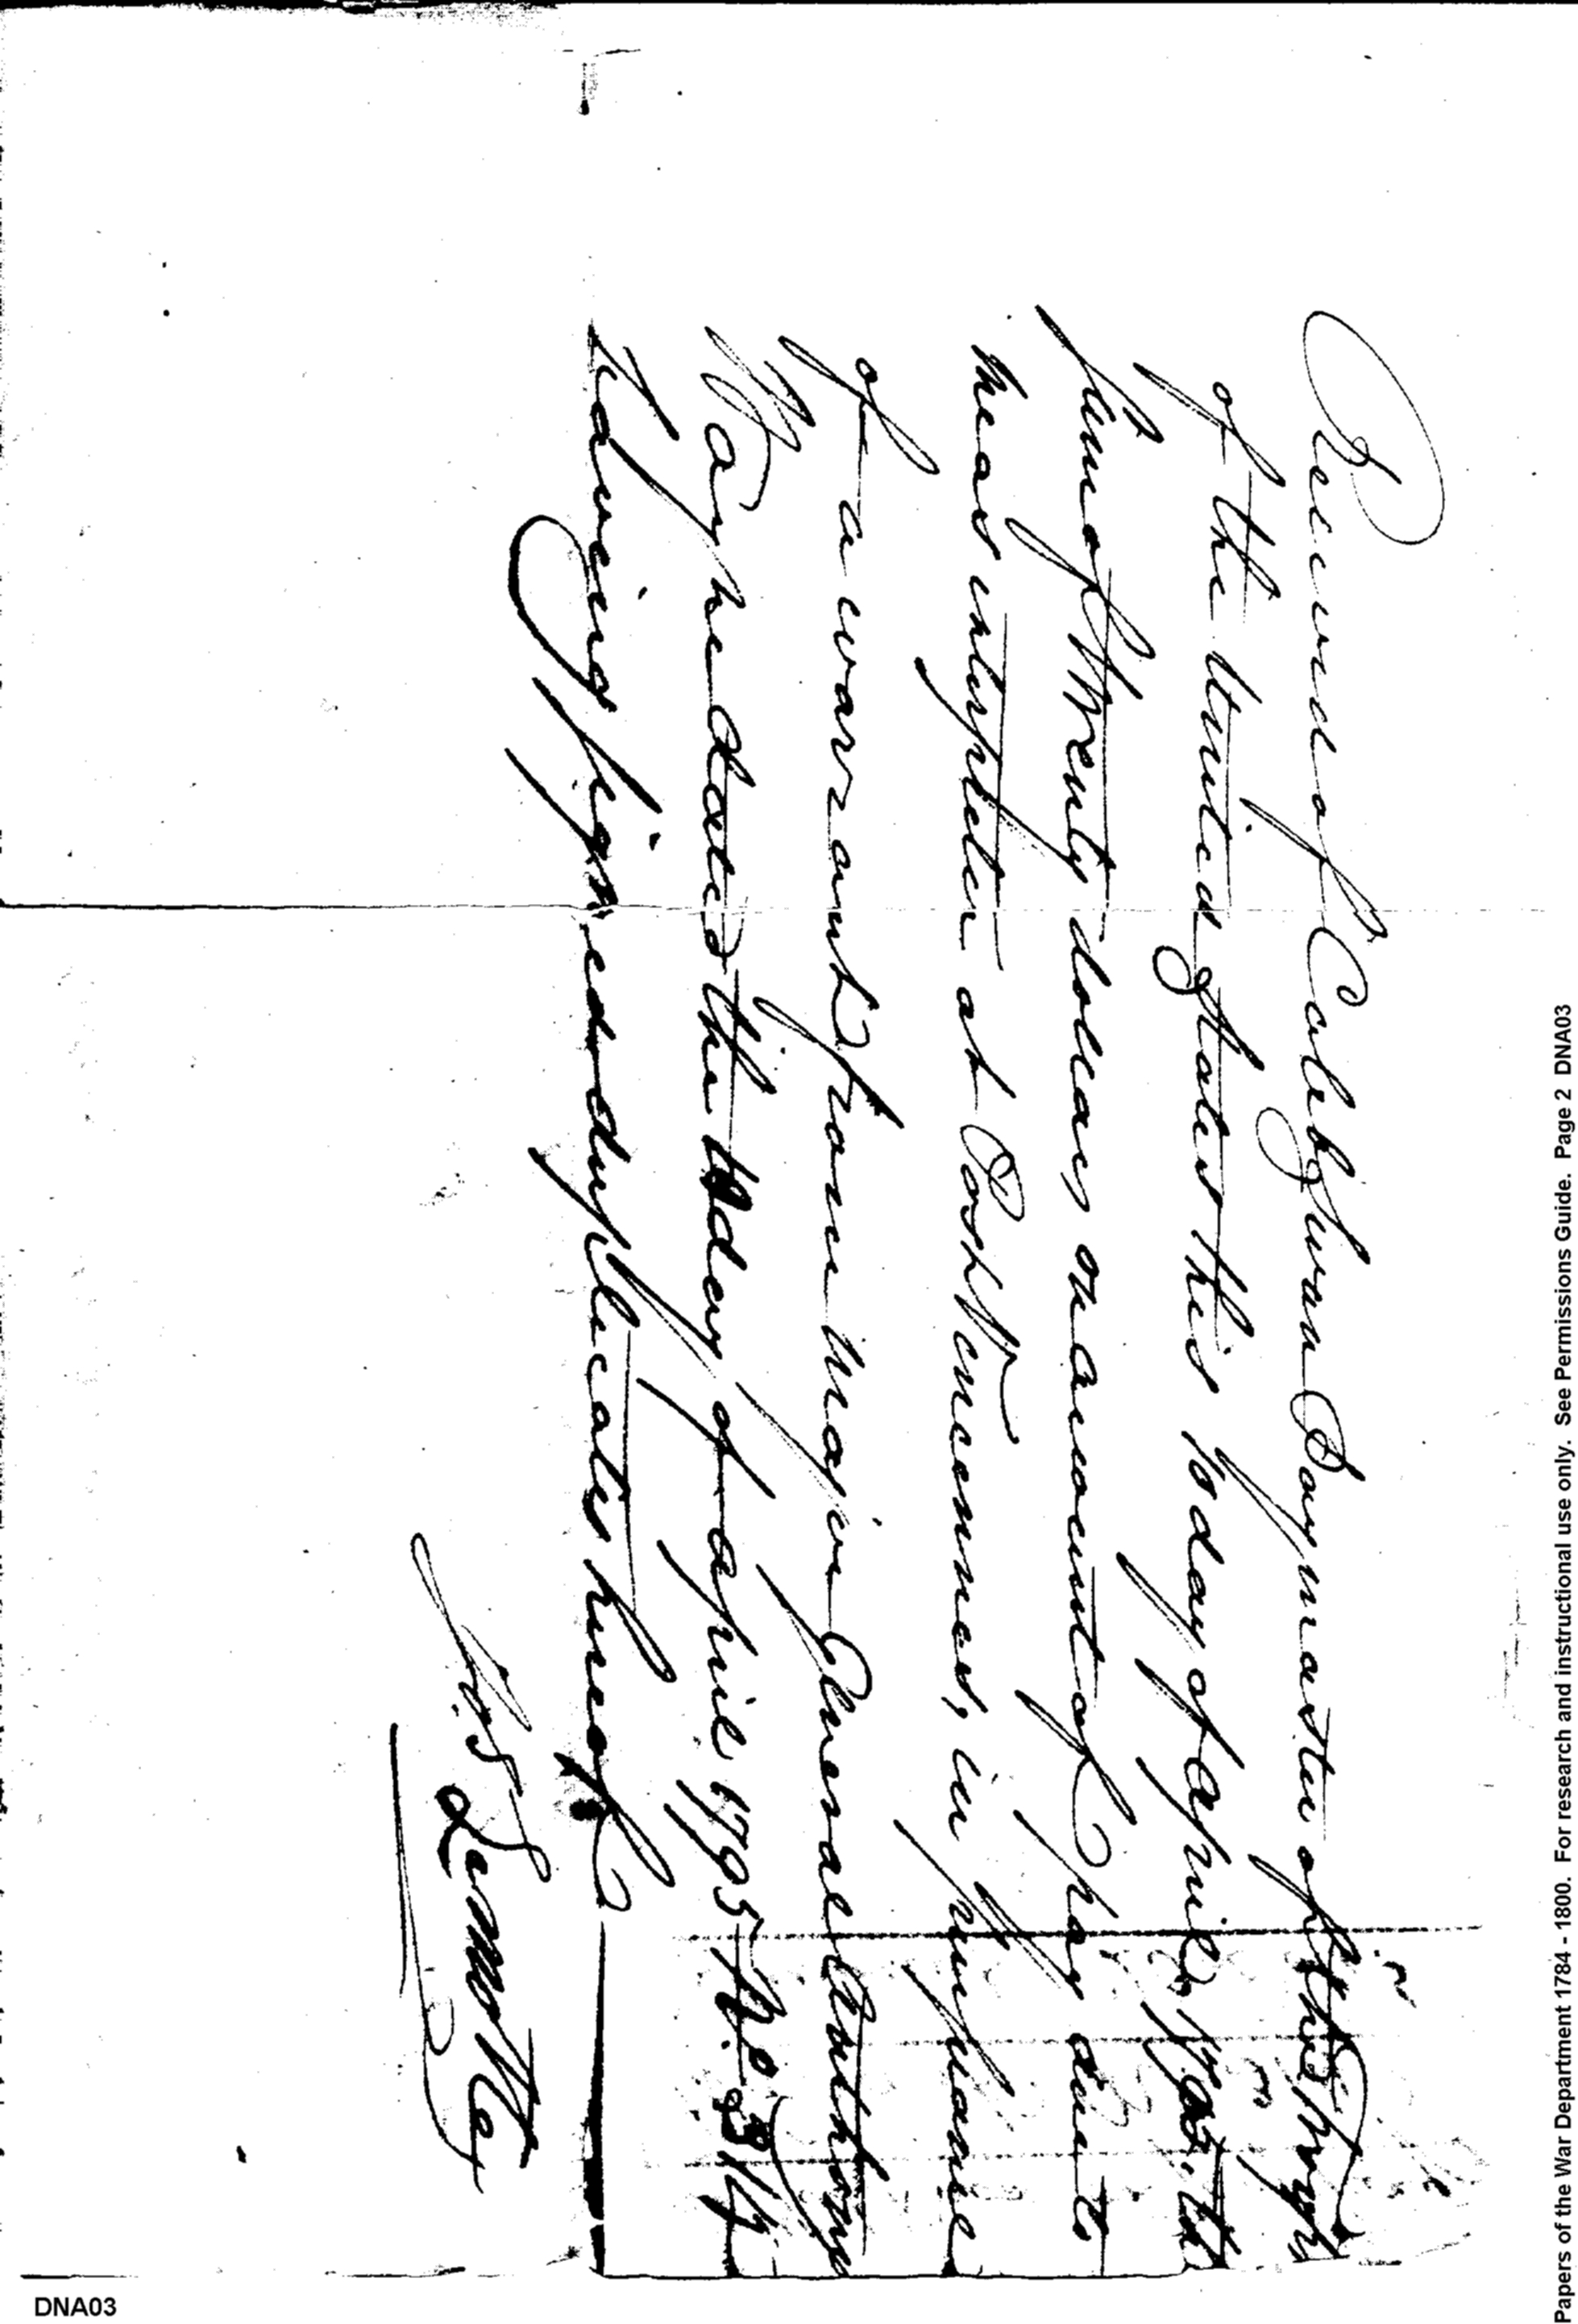 Received of Caleb Swan Paymaster of the troops
of the United States this 10 day of april 1795, the
sum of twenty dollars on account of pay due to
me as interpreter at Post Vincennes, in pursuance
of a warrant from Major General Anthony
Wayne dated the day of april 1795 No. 314
having signed duplicates hereof
LamoTte
Papers of the War Department 1784 - 1800. For research and instructional use only. See Permissions Guide. Page 2 DNA03
DNA03